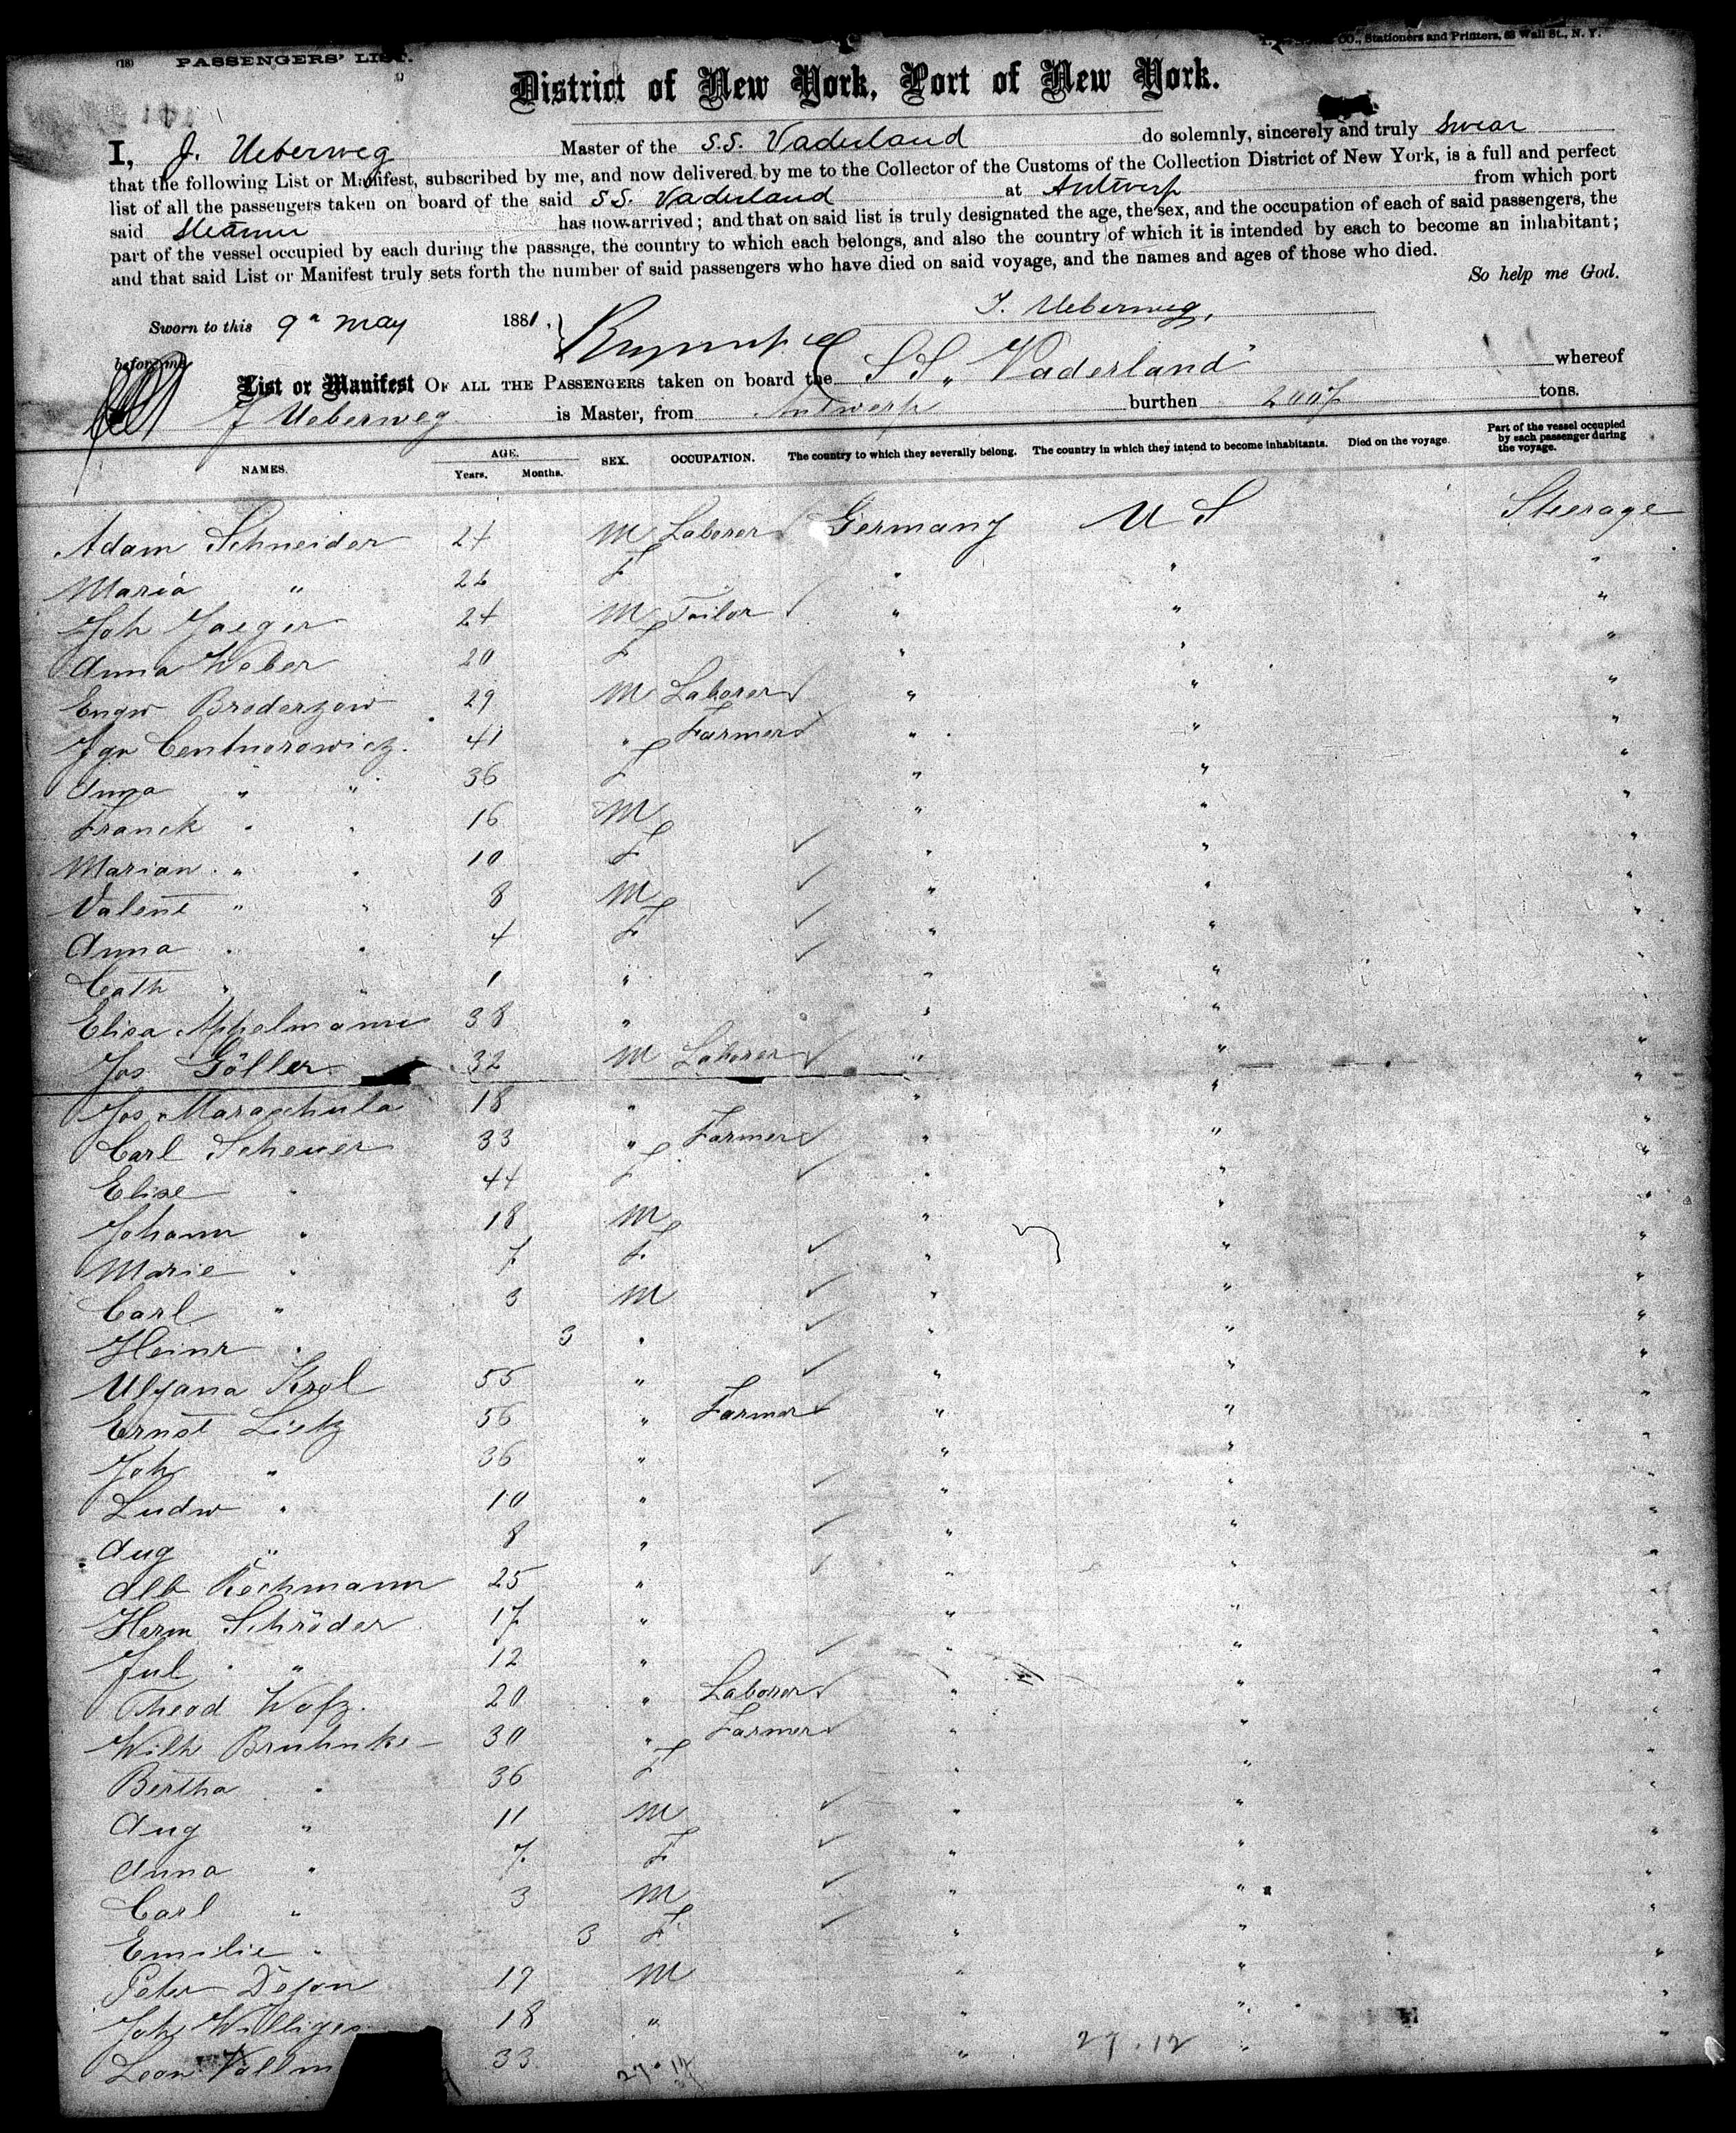 (18) PASSENGERS' LIST. CO., Stationers and Printers, 63 Wall St., N. Y.
District of New York, Port of New York.
I, J. Ueberweg Master of the S.S. Vaderland do solemnly, sincerely and truly swear
that the following List or Manifest, subscribed by me, and now delivered by me to the Collector of the Customs of the Collection District of New York, is a full and perfect
list of all the passengers taken on board of the said S.S. Vaderland at Antwerp from which port
said Steamer has now arrived; and that on said list is truly designated the age, the sex, and the occupation of each of said passengers, the
part of the vessel occupied by each during the passage, the country to which each belongs, and also the country of which it is intended by each to become an inhabitant;
and that said List or Manifest truly sets forth the number of said passengers who have died on said voyage, and the names and ages of those who died.
So help me God.
Sworn to this 9th May 1881, J. Ueberweg,
before me
List or Manifest OF ALL THE PASSENGERS taken on board the S.S. "Vaderland" whereof
J Ueberweg is Master, from Antwerp burthen 2007 tons.
NAMES. AGE. Years. Months. SEX. OCCUPATION. The country to which they severally belong. The country in which they intend to become inhabitants. Died on the voyage. Part of the vessel occupied by each passenger during the voyage.
Adam Schneider 24 M Laborer Germany U S Steerage
Maria " 22 F " " "
Joh Jaeger 24 M Tailor " " "
Anna Weber 20 F " " "
Engw Broderzow 29 M Laborer " " "
Ign Centnerowicz. 41 " Farmer " " "
Anna " " 36 F " " "
Franck " " 16 M " " "
Marian " " 10 F " " "
Valent " " 8 M " " "
Anna " " 4 F " " "
Cath " " 1 " " " "
Elisa Appelmann 38 " " " "
Jos Göller 32 M Laborer " " "
Jos. Maraschula 18 " " " "
Carl Scheuer 33 " Farmer " " "
Elise " 44 F " " "
Johann " 18 M " " "
Marie " 7 F " " "
Carl " 3 M " " "
Heinr " 3 " " " "
Ulyana Krol 55 " " " "
Ernst Lietz 56 " Farmer " " "
Joh " 36 " " " "
Ludw " 10 " " " "
Aug " 8 " " " "
Alb Kochmann 25 " " " "
Herm Schröder 17 " " " "
Jul " " 12 " " " "
Theod Wofz. 20 " Laborer " " "
Wilh Bruhnke 30 " Farmer " " "
Bertha " 36 F " " "
Aug " 11 M " " "
Anna " 7 F " " "
Carl " 3 M " " "
Emilie " 3 F " " "
Peter Dejon 19 M " " "
Joh Williges 18 " " " "
Leon Vallm 33 " " "
27.12 27.12